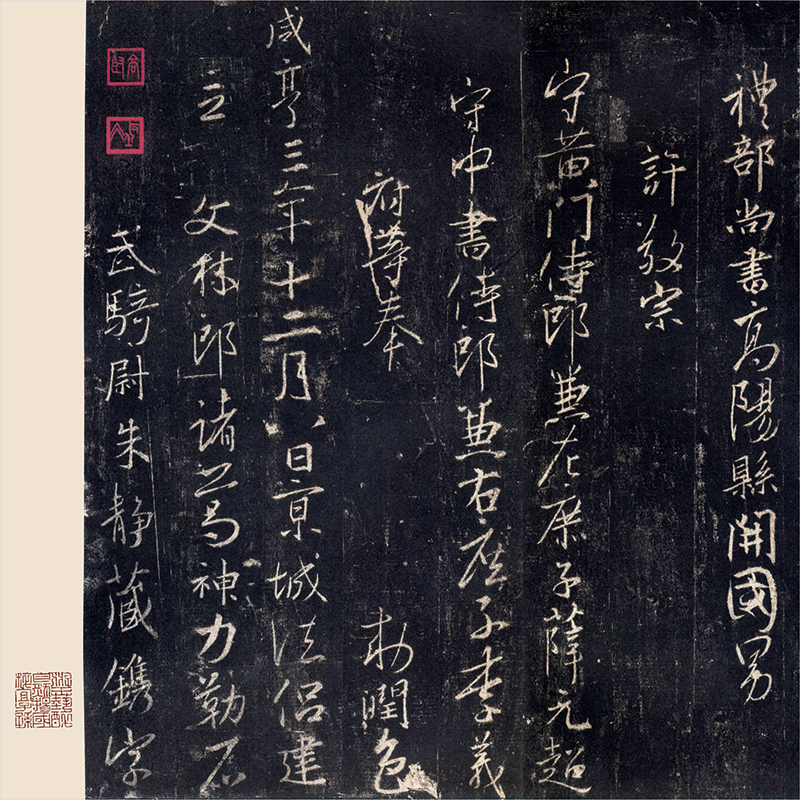 禮部尚書高陽縣開國男
許敬宗
守黃門侍郎兼左庶子薛元超
守中書侍郎兼右庶子李義
府等奉 勅潤色
咸亨三年十二月八日京城法侶建
立 文林郎諸葛神力勒石
武騎尉朱靜藏鐫字